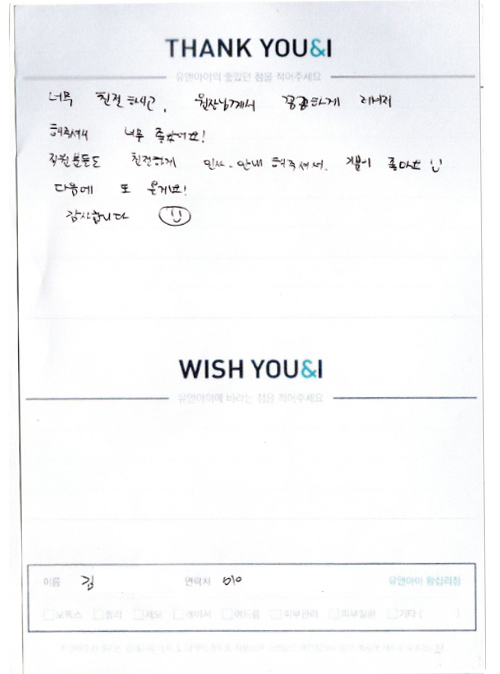 THANK YOU&I
유앤아이의 좋았던 점을 적어주세요
너무 친절하시고, 원장님께서 꼼꼼하게 레이저
해주셔서 너무 좋았어요!
직원분들도 친절하게 인사·안내 해주셔서, 기분이 좋아요
다음에 또 올게요!
감사합니다
WISH YOU&I
유앤아이에 바라는 점을 적어주세요
이름 김 연락처 010 유앤아이 왕십리점
보톡스 필러 제모 레이저 여드름 피부관리 피부질환 기타 ( )